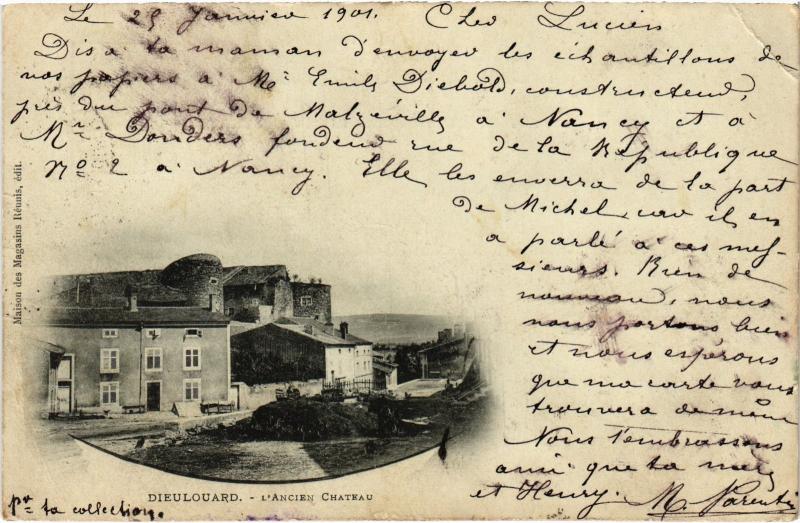 Le 25 Janvier 1901. Cher Lucien
Dis à ta maman d'envoyer les échantillons de
nos papiers à Mr Emile Diebold, constructeur,
près du pont de Malzéville à Nancy et à
Mr Donders fondeur rue de la République
No 2 à Nancy. Elle les enverra de la part
de Michel, car il en
a parlé à ces mes-
sieurs. Rien de
nouveau, nous
nous portons bien
et nous espérons
que ma carte vous
trouvera de même
Nous t'embrassons
ainsi que ta mère
et Henry. M. Parentin
Maison des Magasins Réunis, édit.
DIEULOUARD. - L'ANCIEN CHATEAU
pr ta collection.